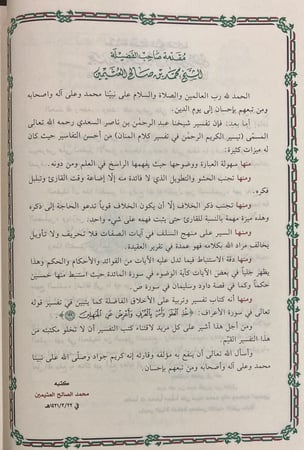 مقدمة صاحب الفضيلة
الشيخ محمد بن صالح العثيمين
الحمد لله رب العالمين والصلاة والسلام على نبينا محمد وعلى آله وأصحابه
ومن تبعهم بإحسان إلى يوم الدين.
أما بعد: فإن تفسير شيخنا عبد الرحمٰن بن ناصر السعدي رحمه الله تعالى
المسمّى (تيسير الكريم الرحمٰن في تفسير كلام المنان) من أحسن التفاسير حيث كان
له ميزات كثيرة:
منها سهولة العبارة ووضوحها حيث يفهمها الراسخ في العلم ومن دونه.
ومنها تجنب الحشو والتطويل الذي لا فائدة منه إلّا إضاعة وقت القارئ وتبلبل
فكره.
ومنها تجنب ذكر الخلاف إلّا أن يكون الخلاف قوياً تدعو الحاجة إلى ذكره
وهذه ميزة مهمة بالنسبة للقارئ حتى يثبت فهمه على شيء واحد.
ومنها السير على منهج السلف في آيات الصفات فلا تحريف ولا تأويل
يخالف مراد الله بكلامه فهو عمدة في تقرير العقيدة.
ومنها دقة الاستنباط فيما تدل عليه الآيات من الفوائد والأحكام والحكم وهذا
يظهر جلياً في بعض الآيات كآية الوضوء في سورة المائدة حيث استنبط منها خمسين
حكماً وكما في قصة داود وسليمان في سورة ص.
ومنها أنه كتاب تفسير وتربية على الأخلاق الفاضلة كما يتبين في تفسير قوله
تعالى في سورة الأعراف: ﴿خُذِ الْعَفْوَ وَأْمُرْ بِالْعُرْفِ وَأَعْرِضْ عَنِ الْجَاهِلِينَ﴾
ومن أجل هذا أشير على كل مريد لاقتناء كتب التفسير أن لا تخلو مكتبته من
هذا التفسير القيّم.
وأسأل الله تعالى أن ينفع به مؤلفه وقارئه إنه كريم جواد وصلّى الله على نبيّنا
محمد وعلى آله وأصحابه ومن تبعهم بإحسان.
كتبه
محمد الصالح العثيمين